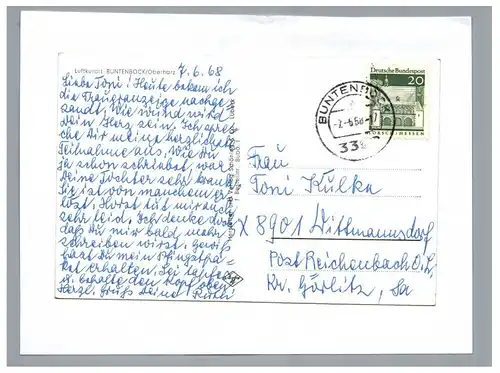 Luftkurort BUNTENBOCK/Oberharz
7.6.68
Liebe Toni! Heute bekam ich
die Traueranzeige nachge-
sandt. Wie wund wird
Dein Herz sein. Ich spre-
che Dir meine herzliche
Teilnahme aus. Wie Du
ja schon schriebst, war
Deine Tochter sehr krank.
Sie ist von manchem er-
löst. Horst tut mir auch
sehr leid. Ich denke doch
daß Du mir bald mehr
schreiben wirst, gewiß
hast Du mein Pfingstpa-
ket erhalten. Sei tapfer
u. behalte den Kopf oben
Herzl. Gruß Deine
Deutsche Bundespost
20
BUNTENBOCK
-7.-6.68
Frau
Toni Kulka
X 8901 Dittmannsdorf
Post Reichenbach O.L.
Kr. Görlitz, Sa